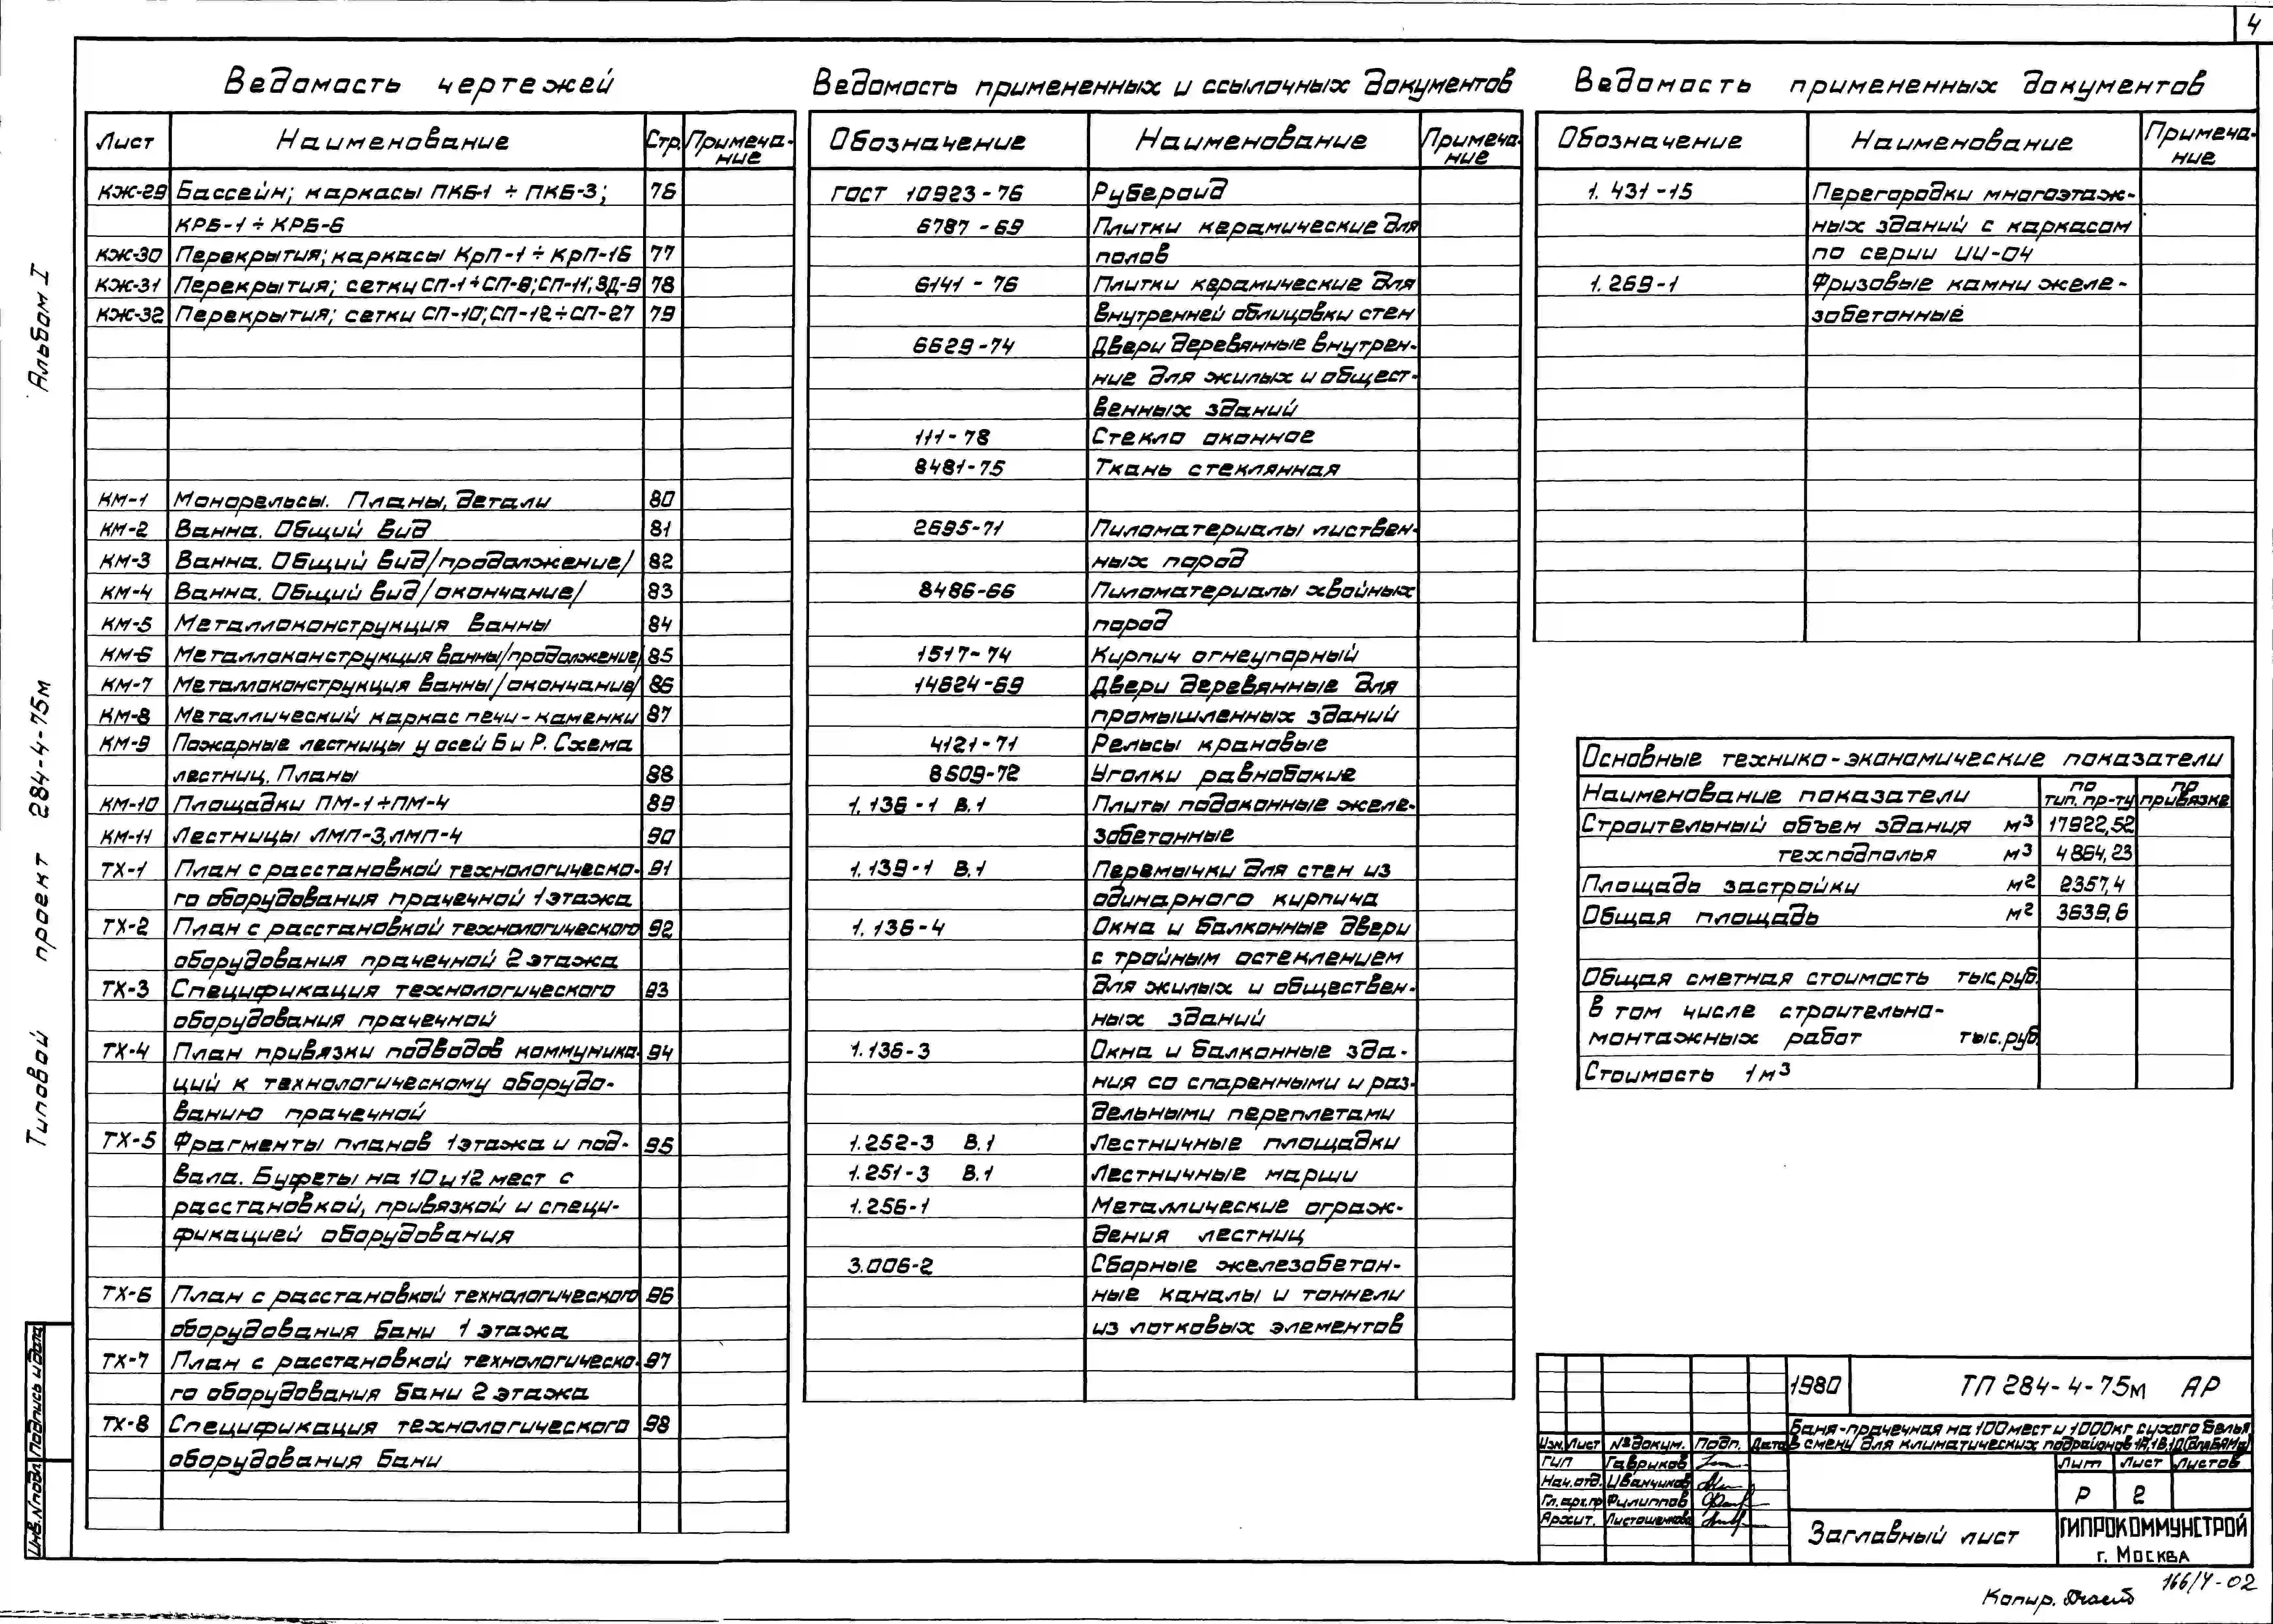 4
Ведомость чертежей
Лист Наименование Стр. Примеча-
ние
КЖ-29 Бассейн; каркасы ПКБ-1 ÷ ПКБ-3; 76
КРБ-1 ÷ КРБ-6
КЖ-30 Перекрытия; каркасы КрП-1 ÷ КрП-16 77
КЖ-31 Перекрытия; сетки СП-1÷СП-9; СП-11; ЗД-9 78
КЖ-32 Перекрытия; сетки СП-10; СП-12÷СП-27 79
КМ-1 Монорельсы. Планы, детали 80
КМ-2 Ванна. Общий вид 81
КМ-3 Ванна. Общий вид /продолжение/ 82
КМ-4 Ванна. Общий вид /окончание/ 83
КМ-5 Металлоконструкция ванны 84
КМ-6 Металлоконструкция ванны /продолжение/ 85
КМ-7 Металлоконструкция ванны /окончание/ 86
КМ-8 Металлический каркас печи-каменки 87
КМ-9 Пожарные лестницы у осей Б и Р. Схема
лестниц. Планы 88
КМ-10 Площадки ПМ-1÷ПМ-4 89
КМ-11 Лестницы ЛМП-3, ЛМП-4 90
ТХ-1 План с расстановкой технологическо- 91
го оборудования прачечной 1 этажа
ТХ-2 План с расстановкой технологического 92
оборудования прачечной 2 этажа
ТХ-3 Спецификация технологического 93
оборудования прачечной
ТХ-4 План привязки подводов коммуника- 94
ций к технологическому оборудо-
ванию прачечной
ТХ-5 Фрагменты планов 1 этажа и под- 95
вала. Буфеты на 10 и 12 мест с
расстановкой, привязкой и специ-
фикацией оборудования
ТХ-6 План с расстановкой технологического 96
оборудования бани 1 этажа
ТХ-7 План с расстановкой технологическо- 97
го оборудования бани 2 этажа
ТХ-8 Спецификация технологического 98
оборудования бани
Ведомость примененных и ссылочных документов
Обозначение Наименование Примеча-
ние
ГОСТ 10923-76 Рубероид
6787-69 Плитки керамические для
полов
6141-76 Плитки керамические для
внутренней облицовки стен
6629-74 Двери деревянные внутрен-
ние для жилых и общест-
венных зданий
111-78 Стекло оконное
8481-75 Ткань стеклянная
2695-71 Пиломатериалы листвен-
ных пород
8486-66 Пиломатериалы хвойных
пород
1517-74 Кирпич огнеупорный
14624-69 Двери деревянные для
промышленных зданий
4121-71 Рельсы крановые
8509-72 Уголки равнобокие
1.136-1 В.1 Плиты подоконные желе-
зобетонные
1.139-1 В.1 Перемычки для стен из
одинарного кирпича
1.136-4 Окна и балконные двери
с тройным остеклением
для жилых и обществен-
ных зданий
1.136-3 Окна и балконные зда-
ния со спаренными и раз-
дельными переплетами
1.252-3 В.1 Лестничные площадки
1.251-3 В.1 Лестничные марши
1.256-1 Металлические ограж-
дения лестниц
3.006-2 Сборные железобетон-
ные каналы и тоннели
из лотковых элементов
Ведомость примененных документов
Обозначение Наименование Примеча-
ние
1.431-15 Перегородки многоэтаж-
ных зданий с каркасом
по серии ИИ-04
1.269-1 Фризовые камни желе-
зобетонные
Основные технико-экономические показатели
Наименование показатели по тип. пр-ту по привязке
Строительный объем здания м3 17922,52
техподполья м3 4864,23
Площадь застройки м2 2357,4
Общая площадь м2 3639,6
Общая сметная стоимость тыс.руб.
в том числе строительно-
монтажных работ тыс.руб.
Стоимость 1м3
1980 ТП 284-4-75м АР
Баня-прачечная на 100 мест и 1000кг сухого белья
в смену для климатических подрайонов 1А, 1В, 1Д (для БАМа)
Изм. Лист № докум. Подп. Дата
ГИП Гавриков
Нач. отд. Иванчиков
Гл. арх. пр. Филиппов
Архит.
Лит Лист Листов
Р 2
Заглавный лист
ГИПРОКОММУНСТРОЙ
г. Москва
Копир.
166/4-02
Альбом I
Типовой проект 284-4-75м
Инв. № подл. Подпись и дата